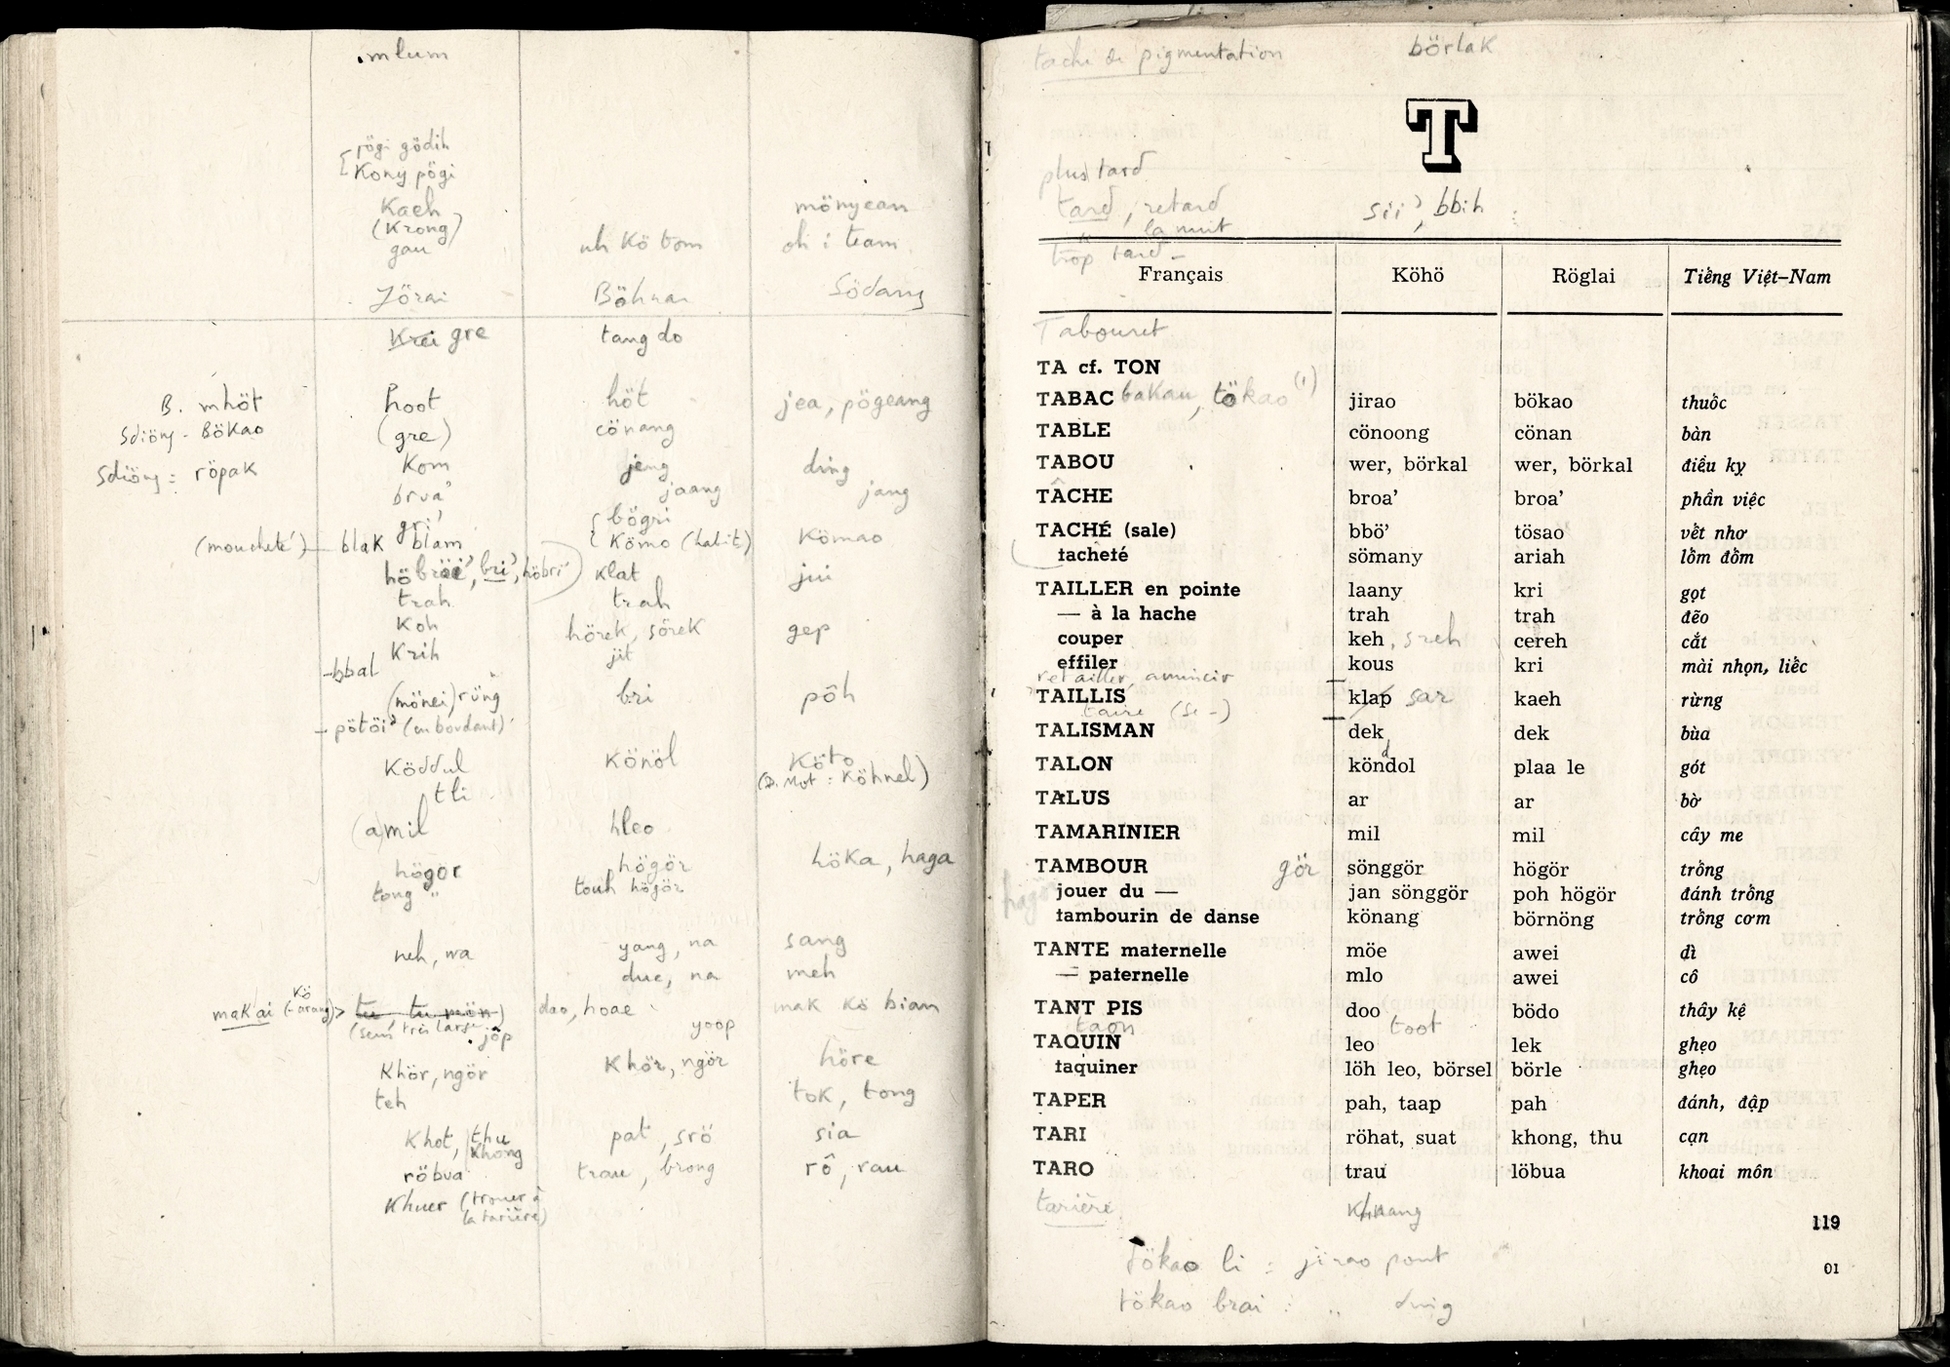 mlum
jögi gödih
Kony pögi
Kaeh mönyean
(Krong)
gau uh Kö tom oh i team
Jörai Böhnar Södang
Krei gre tang do
B. mhöt hoot höt jea, pögeang
Sdiöng - Bökao (gre) cönang
Sdiöng = röpak Kom jeng ding
brva' jaang jang
gri' bögri
(moucheté) blak blam Kömo (habit) Kömao
bri', höbri' klat jui
trah trah
Koh hörek, sörek gep
Krih jit
-bbal
(mönei) rüng bri pôh
- pötöi' (en bordant)
Köddul Könöl Köto
tli (D. Mot : Köhnel)
(a)mil hleo
högör högör höka, haga
tong " touh högör
neh, wa yang, na sang
due, na meh
makai (-arang) > tu, tu mön dao, hoae mak kö bian
jöp yoop
Khör, ngör Khör, ngör höre
teh tok, tong
Khot, thu khong pat, srö sia
röbua trau, brong rô, rau
Khuer (trouer à la tarière)
tache de pigmentation börlak
T
plus tard
tard, retard sii', bbih
la nuit
trop tard -
Français Köhö Röglai Tiếng Việt-Nam
Tabouret
TA cf. TON
TABAC bakau, tökao (1) jirao bökao thuốc
TABLE cönoong cönan bàn
TABOU wer, börkal wer, börkal điều kỵ
TÂCHE broa' broa' phần việc
TACHÉ (sale) bbö' tösao vết nhơ
tacheté sömany ariah lồm đồm
TAILLER en pointe laany kri gọt
— à la hache trah trah đẽo
couper keh, sreh cereh cắt
effiler kous kri mài nhọn, liếc
retailler, amincir
TAILLIS klap sar kaeh rừng
taire (se -)
TALISMAN dek dek bùa
TALON köndol d plaa le gót
TALUS ar ar bờ
TAMARINIER mil mil cây me
TAMBOUR gör sönggör högör trồng
jouer du — jan sönggör poh högör đánh trồng
tambourin de danse könang börnöng trồng cơm
TANTE maternelle möe awei dì
— paternelle mlo awei cô
TANT PIS doo bödo thây kệ
taon toot
TAQUIN leo lek ghẹo
taquiner löh leo, börsel börle ghẹo
TAPER pah, taap pah đánh, đập
TARI röhat, suat khong, thu cạn
TARO trau löbua khoai môn
tarière
119
tökao li : jirao pont
01
tökao brai : " dvig